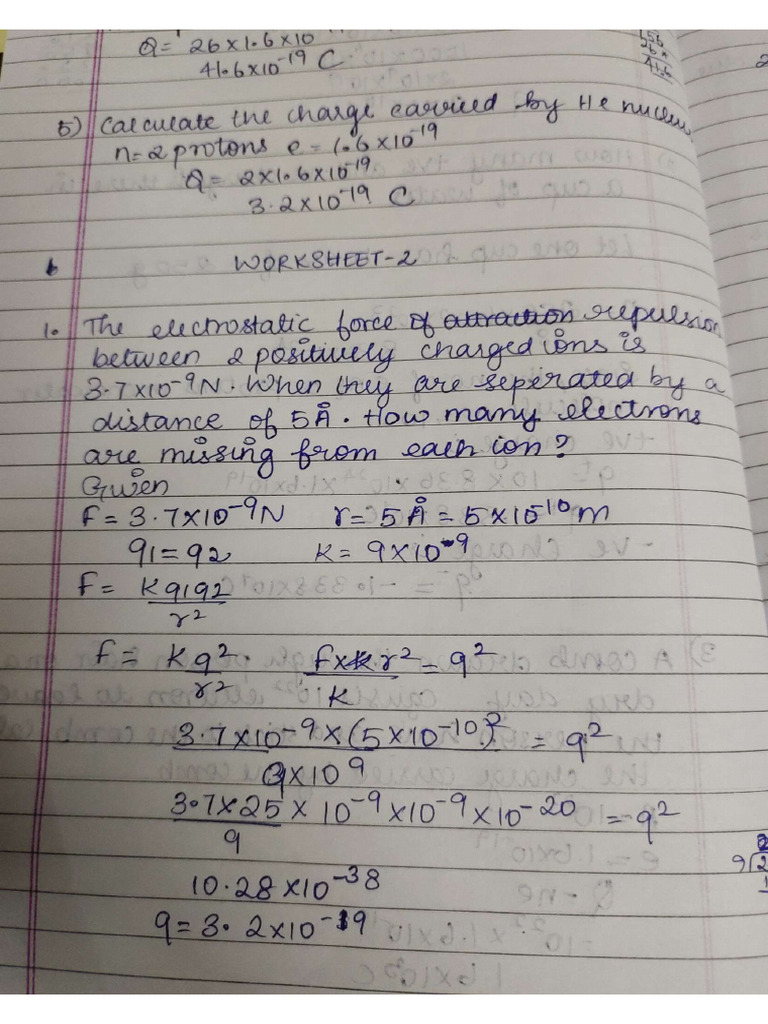 Q = 26×1.6×10
41.6×10⁻¹⁹ C
5) Calculate the charge carried by He
n=2 protons e=1.6×10⁻¹⁹
Q= 2×1.6×10⁻¹⁹
3.2×10⁻¹⁹ C
WORKSHEET-2
1. The electrostatic force of attraction repulsion
between 2 positively charged ions is
3.7×10⁻⁹N. When they are seperated by a
distance of 5Å. How many electrons
are missing from each ion?
Given
F = 3.7×10⁻⁹N r= 5Å = 5×10⁻¹⁰m
q1=q2 K= 9×10⁻⁹
F= Kq1q2
r²
F= Kq² F×r² = q²
r² K
3.7×10⁻⁹×(5×10⁻¹⁰)² = q²
9×10⁹
3.7×25 × 10⁻⁹×10⁻⁹×10⁻²⁰ = q²
9
10.28×10⁻³⁸
q=3.2×10⁻¹⁹